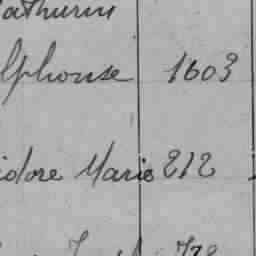 athurin
lphonse 1603
idore Marie 212